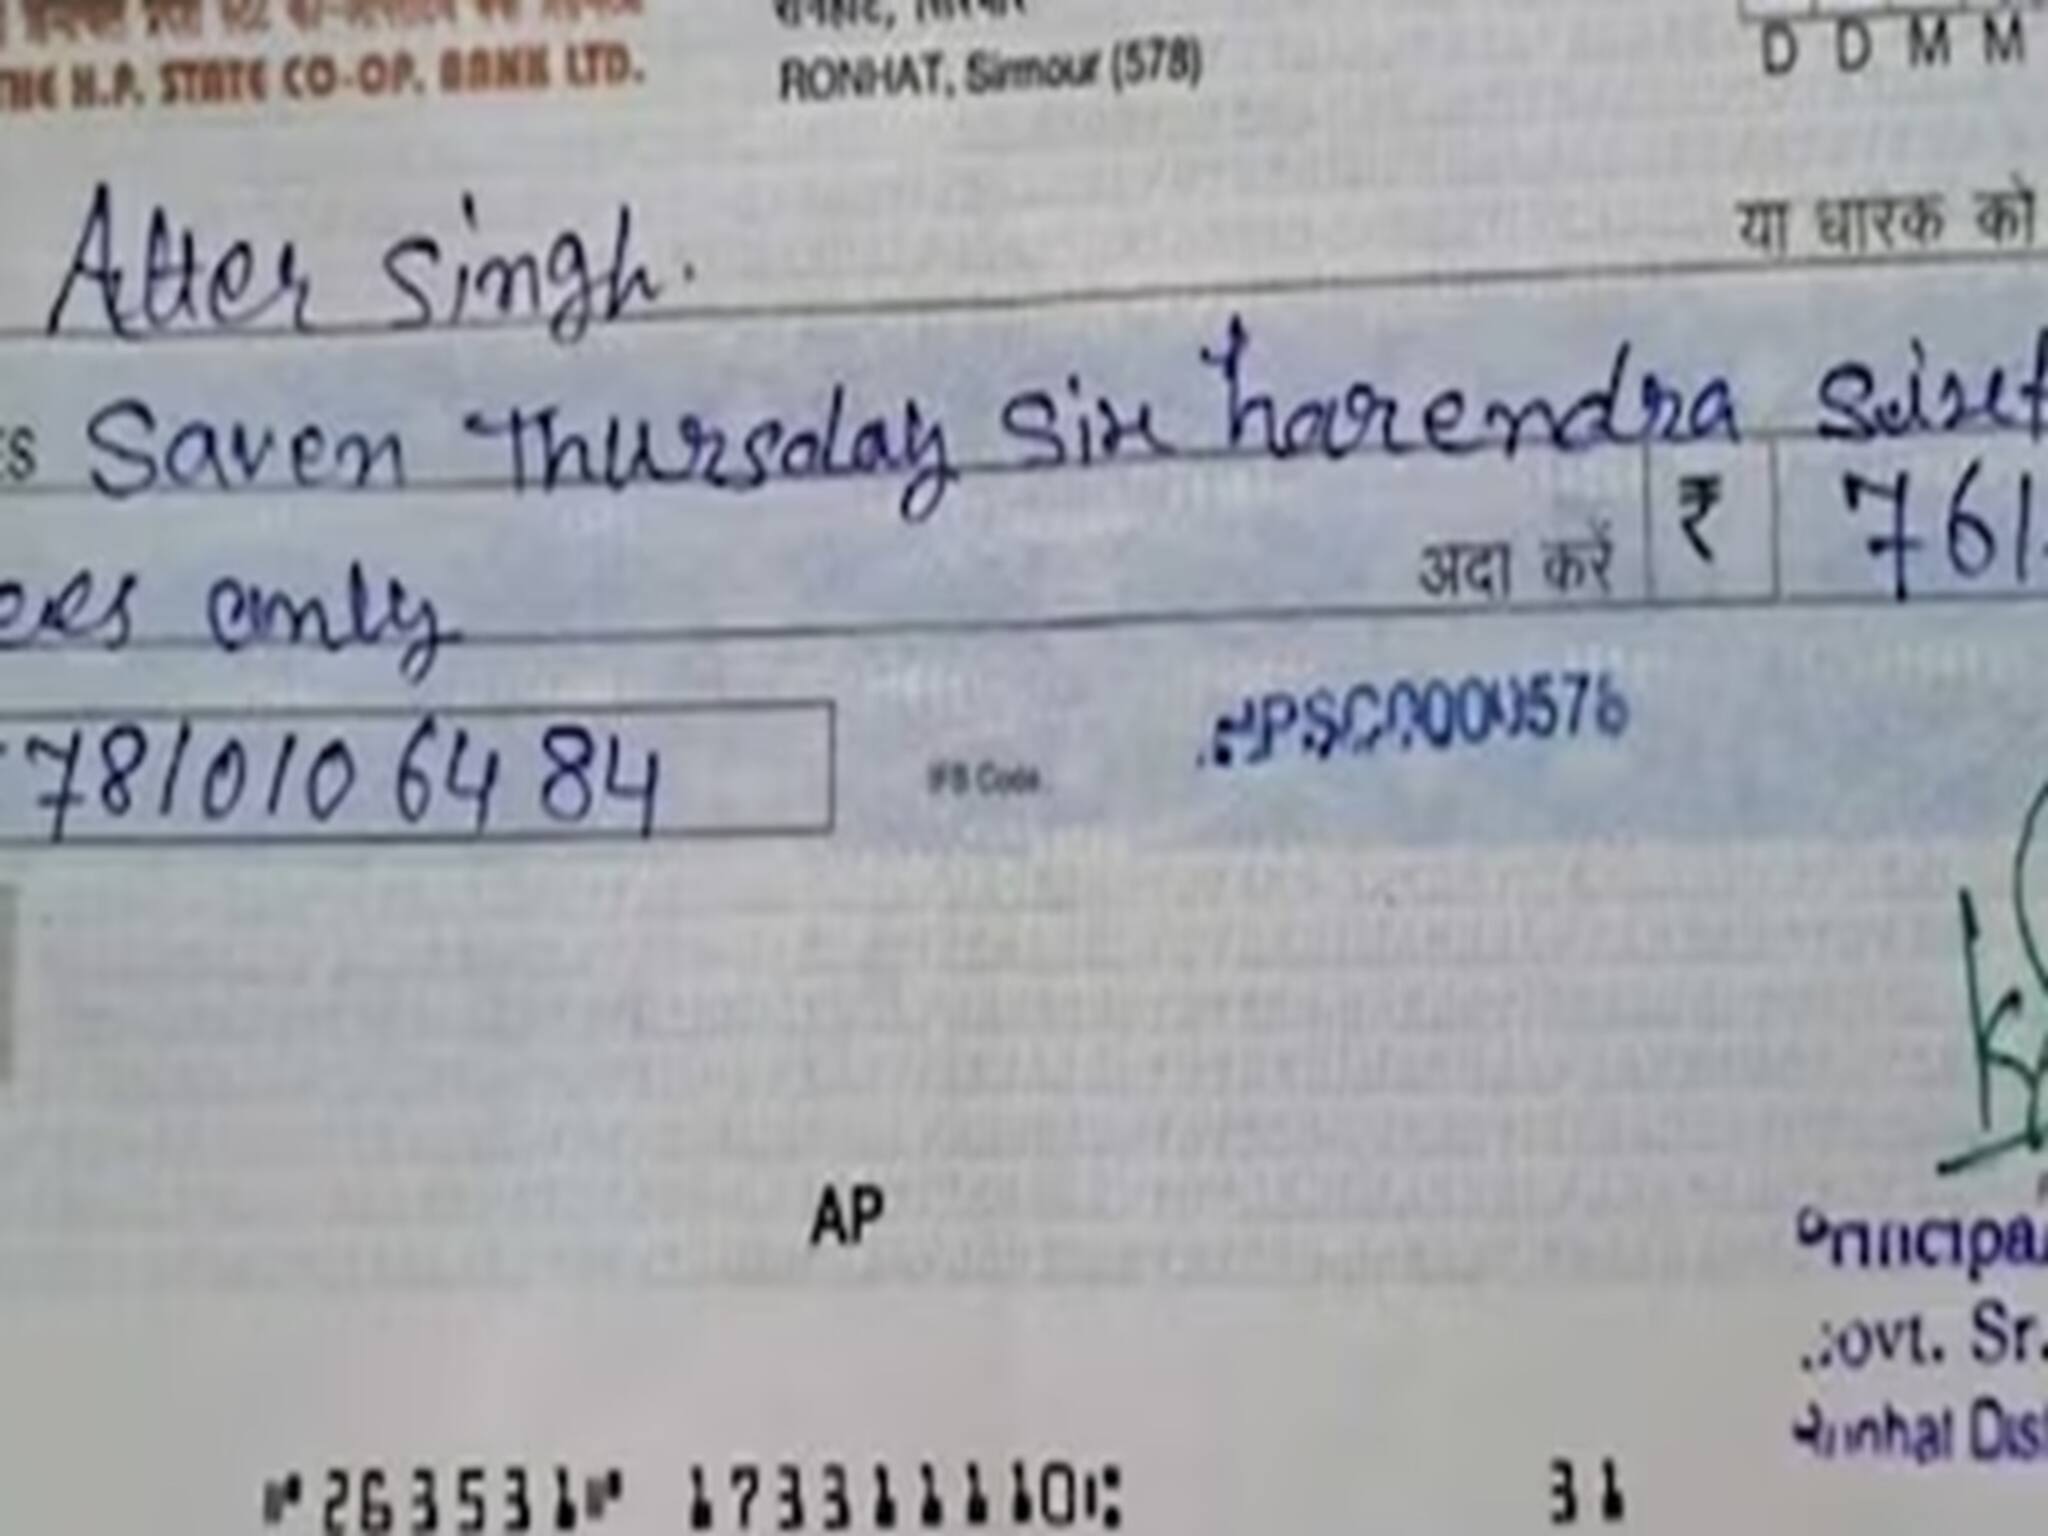 THE H.P. STATE CO-OP. BANK LTD.
RONHAT, Sirmour (578)
D D M M
Atter Singh.
या धारक को
ES Saven Thursday Six harendra Sixt
अदा करें ₹ 761
ees only
7810106484
IFS Code.
HPSC0000578
AP
Principal
Govt. Sr.
Ronhat Dist
"263531" 173311110: 31